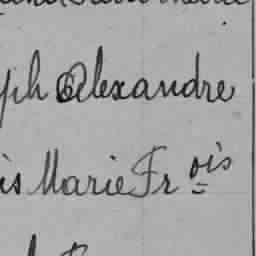 ph Alexandre
is Marie Fr ois